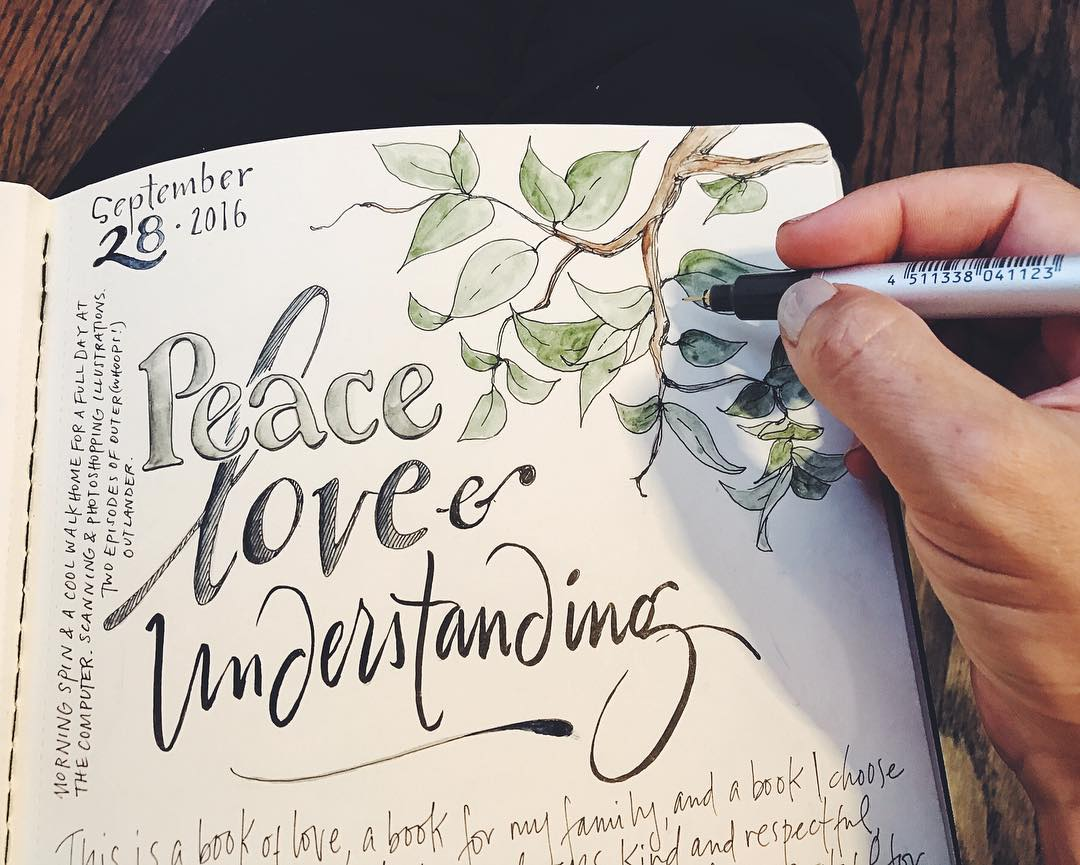 September
28 · 2016
MORNING SPIN & A COOL WALK HOME FOR A FULL DAY AT
THE COMPUTER. SCANNING & PHOTOSHOPPING ILLUSTRATIONS.
TWO EPISODES OF OUTER (WHOOPS!)
OUTLANDER.
Peace
love &
Understanding
4 511338 041123
This is a book of love, a book for my family, and a book I choose
kind and respectful,
for